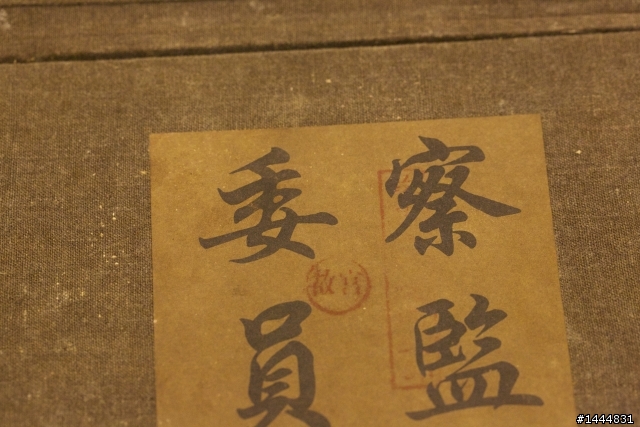 察監
委員
#1444831